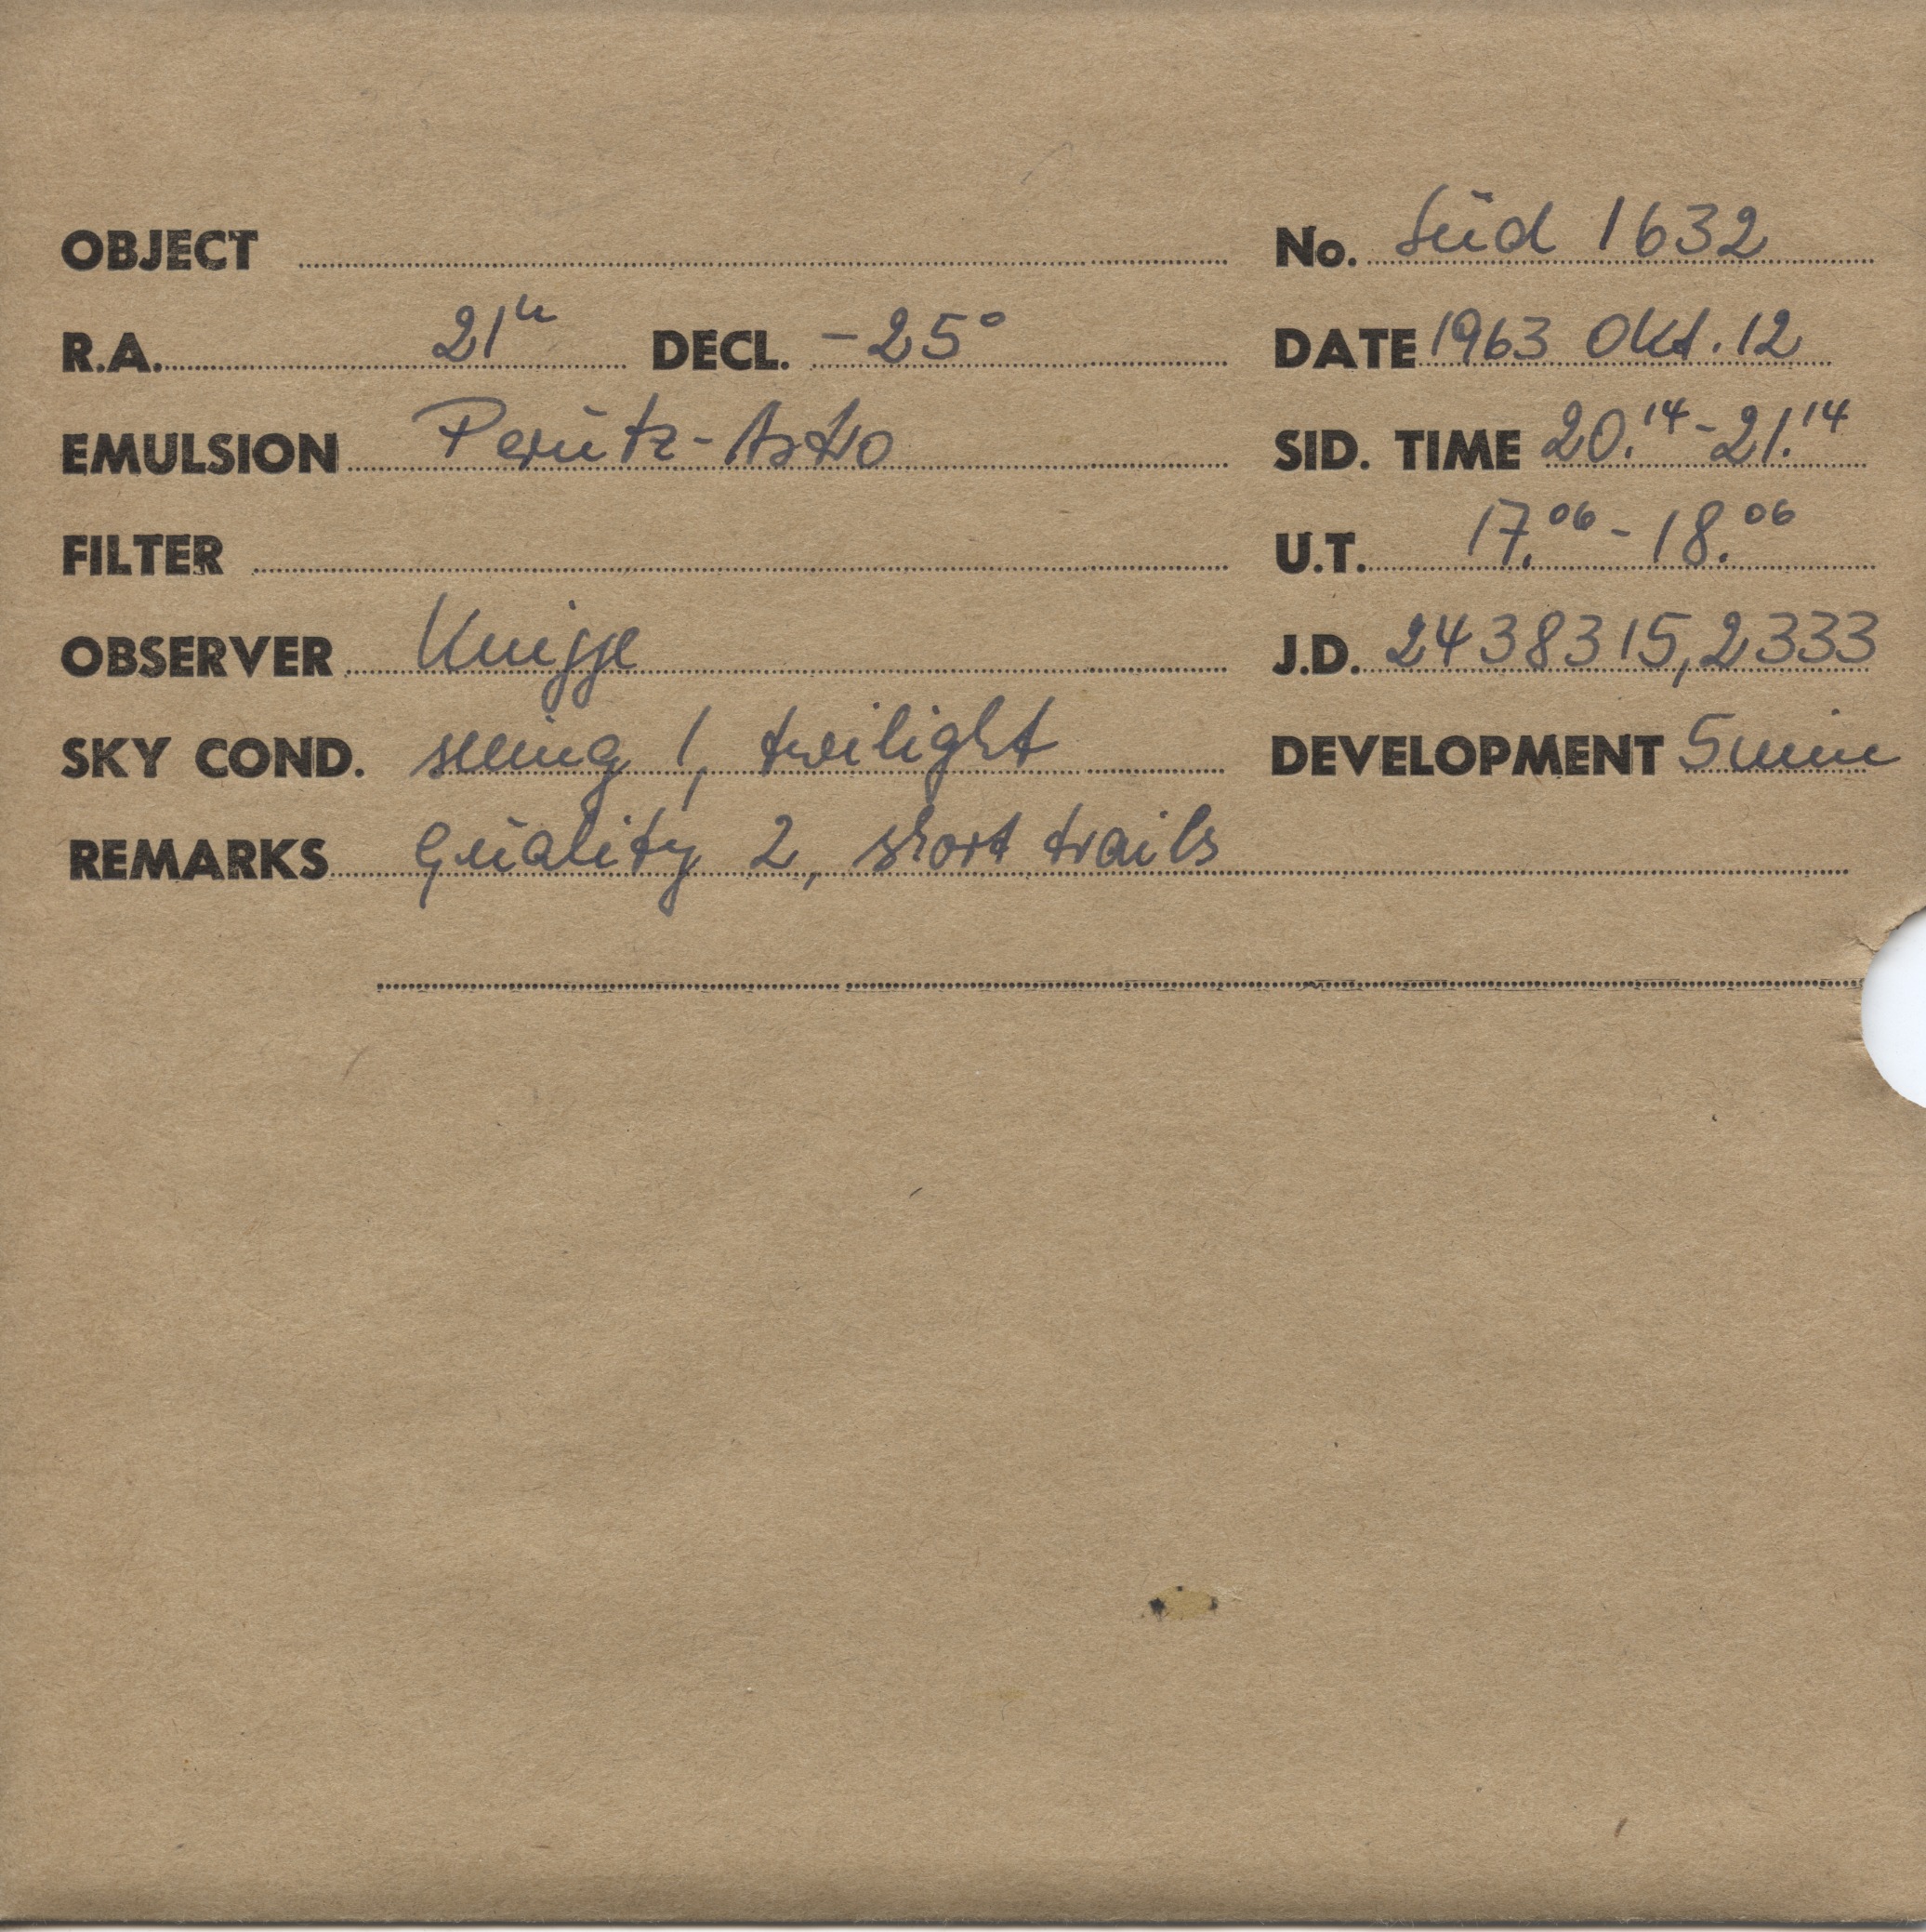 OBJECT No. Süd 1632
R.A. 21h DECL. -25° DATE 1963 Okt. 12
EMULSION Perutz-Astro SID. TIME 20.14-21.14
FILTER U.T. 17.06-18.06
OBSERVER Knigge J.D. 2438315,2333
SKY COND. seeing 1, twilight DEVELOPMENT 5min
REMARKS Quality 2, short trails